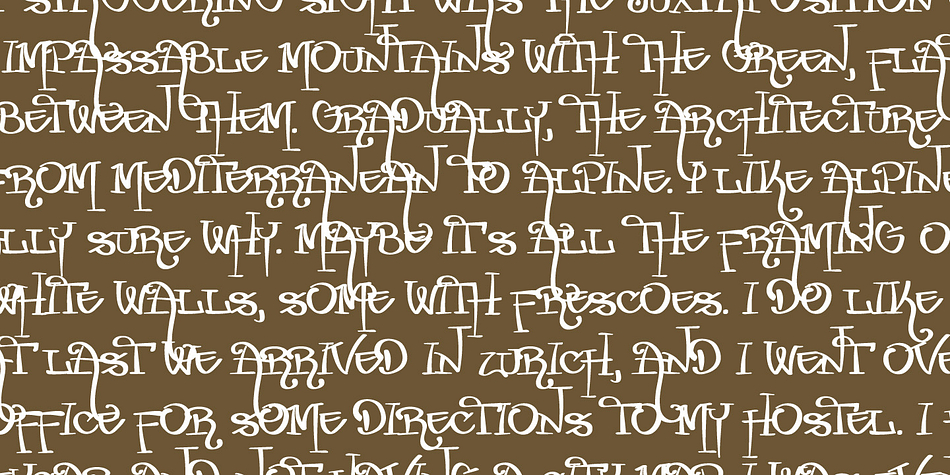 STAGGERING SIGHT WAS THE JUXTAPOSITION
IMPASSABLE MOUNTAINS WITH THE GREEN, FLA
BETWEEN THEM. GRADUALLY, THE ARCHITECTURE
FROM MEDITERRANEAN TO ALPINE. I LIKE ALPINE
LLY SURE WHY. MAYBE IT'S ALL THE FRAMING O
WHITE WALLS, SOME WITH FRESCOES. I DO LIKE
AT LAST WE ARRIVED IN ZURICH, AND I WENT OVE
OFFICE FOR SOME DIRECTIONS TO MY HOSTEL. I